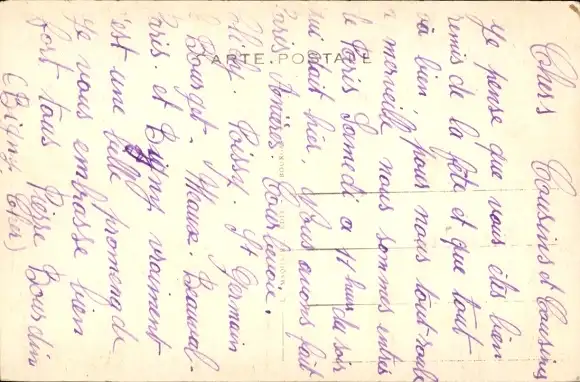 Chers Cousins et Cousines
Je pense que vous êtes bien
remis de la fête et que tout
va bien Pour nous tout roule
à merveille nous sommes entrés
de Paris Samedi a 11 heures du soir
qui était hier, Nous avons fait
Paris Asnières. Courbevoie.
Poissy. St Germain
Le Bourget. Meaux. Beauval
Paris. et Bigny vraiment
c'est une belle promenade
Je vous embrasse bien
fort tous Pierre Bourdin
(Bigny Cher)
CARTE POSTALE